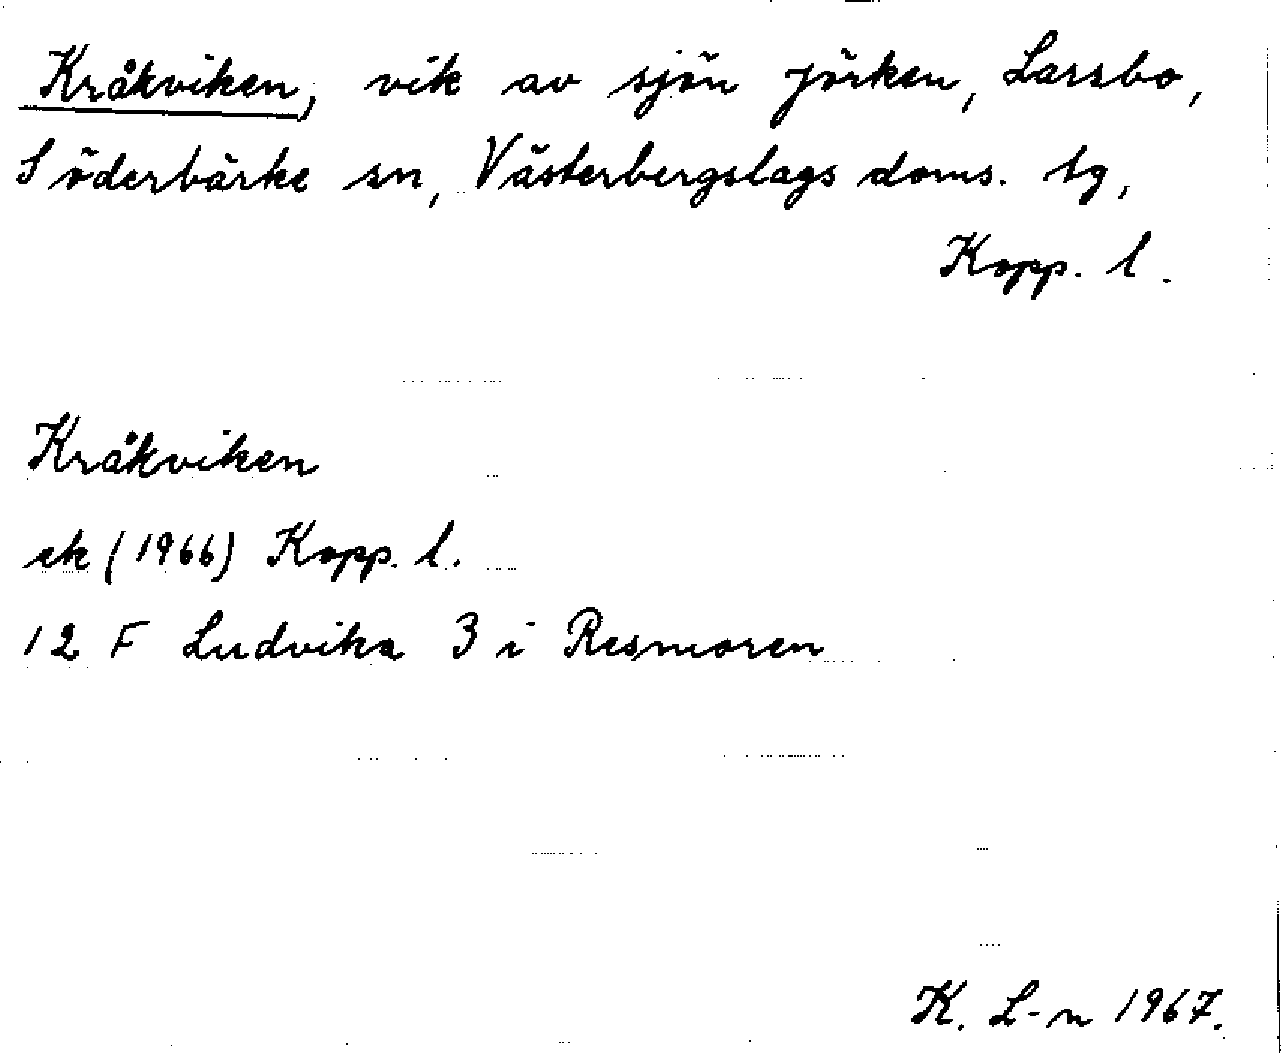 Kråkviken, vik av sjön Jörken, Larsbo,
Söderbärke sn, Västerbergslags doms. tg,
Kopp. l.
Kråkviken
ek (1966) Kopp. l.
12 F Ludvika 3 i Resmoren
K. L-n 1967.